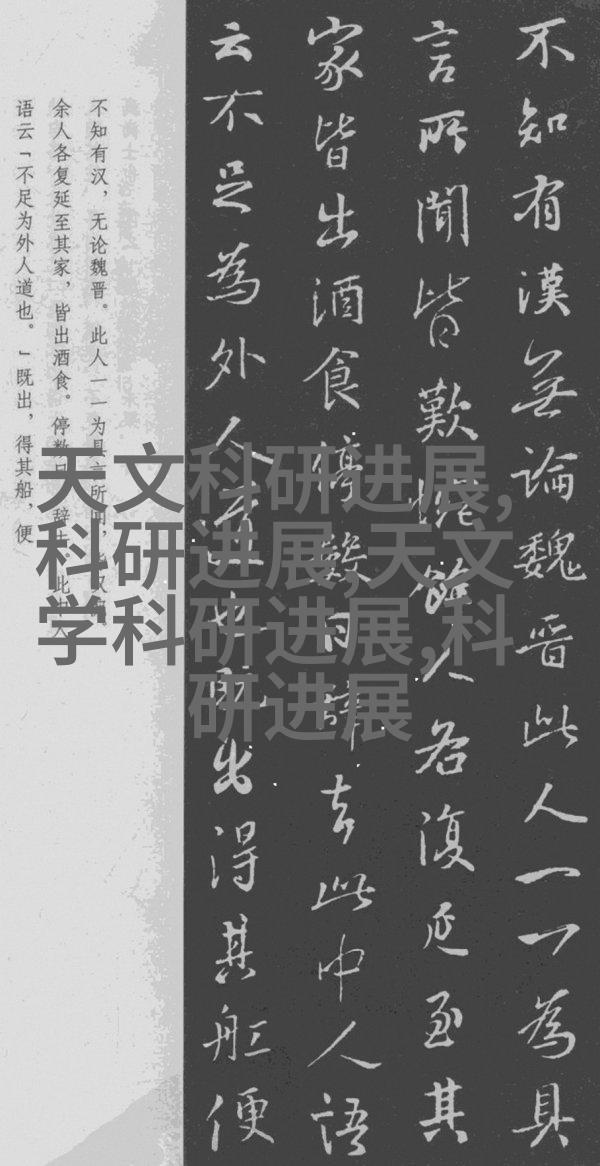 不知有漢無論魏晋此人一一為具
言所聞皆歎惋餘人各復延至其
家皆出酒食停數日辭去此中人語
云不足為外人道也既出得其船便
不知有汉，无论魏晋。此人一一为具言所闻，
余人各复延至其家，皆出酒食。停数日，辞去。此中人
语云「不足为外人道也。」既出，得其船，便
天文科研进展,
科研进展,天文
学科研进展,科
研进展